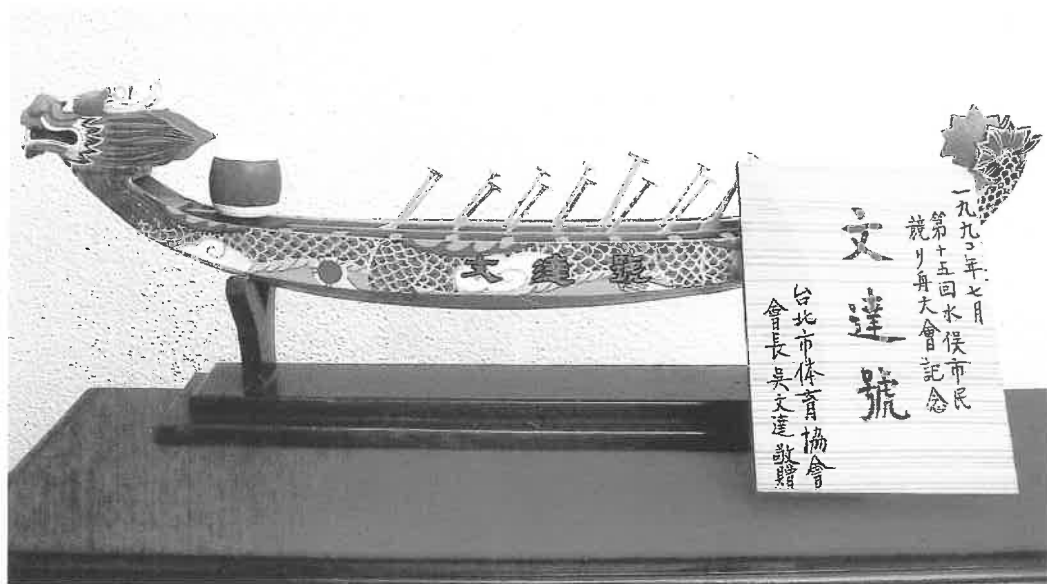 文達號
一九九二年七月
第十五回水俣市民
競り舟大會記念
文達號
台北市体育協會
會長吳文達敬贈